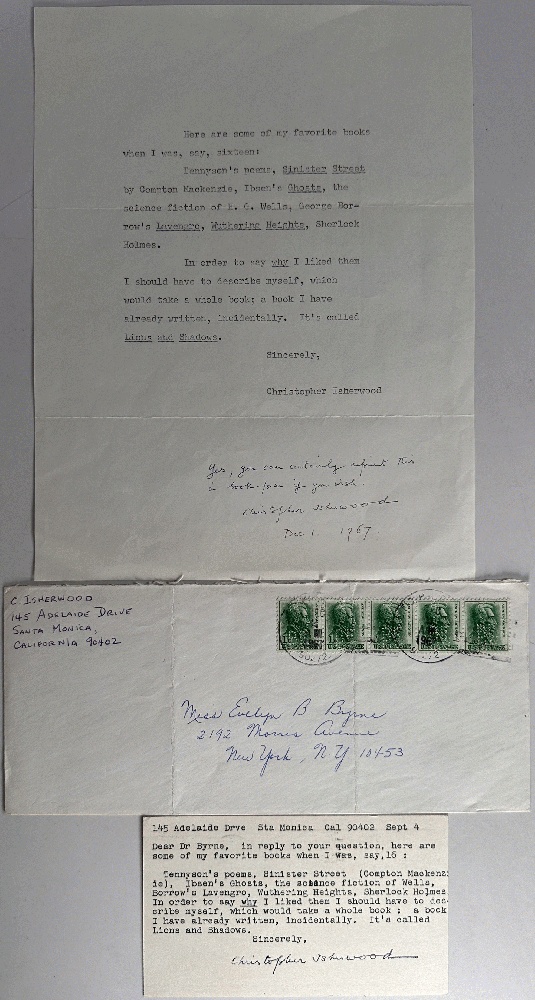 Here are some of my favorite books
when I was, say, sixteen:
Tennyson's poems, Sinister Street
by Compton Mackenzie, Ibsen's Ghosts, the
science fiction of H. G. Wells, George Bor-
row's Lavengro, Wuthering Heights, Sherlock
Holmes.
In order to say why I liked them
I should have to describe myself, which
would take a whole book; a book I have
already written, incidentally. It's called
Lions and Shadows.
Sincerely,
Christopher Isherwood
Yes, you can certainly reprint this
in book-form if you wish.
Christopher Isherwood
Dec 1. 1967.
C ISHERWOOD
145 ADELAIDE DRIVE
SANTA MONICA,
CALIFORNIA 90402
Miss Evelyn B Byrne
2192 Morris Avenue
New York, NY 10453
145 Adelaide Drve Sta Monica Cal 90402 Sept 4
Dear Dr Byrne, in reply to your question, here are
some of my favorite books when I was, say,16 :
Tennyson's poems, Sinister Street (Compton Mackenz
ie), Ibsen's Ghosts, the science fiction of Wells,
Borrow's Lavengro, Wuthering Heights, Sherlock Holmes
In order to say why I liked them I should have to des
cribe myself, which would take a whole book ; a book
I have already written, incidentally. It's called
Lions and Shadows.
Sincerely,
Christopher Isherwood